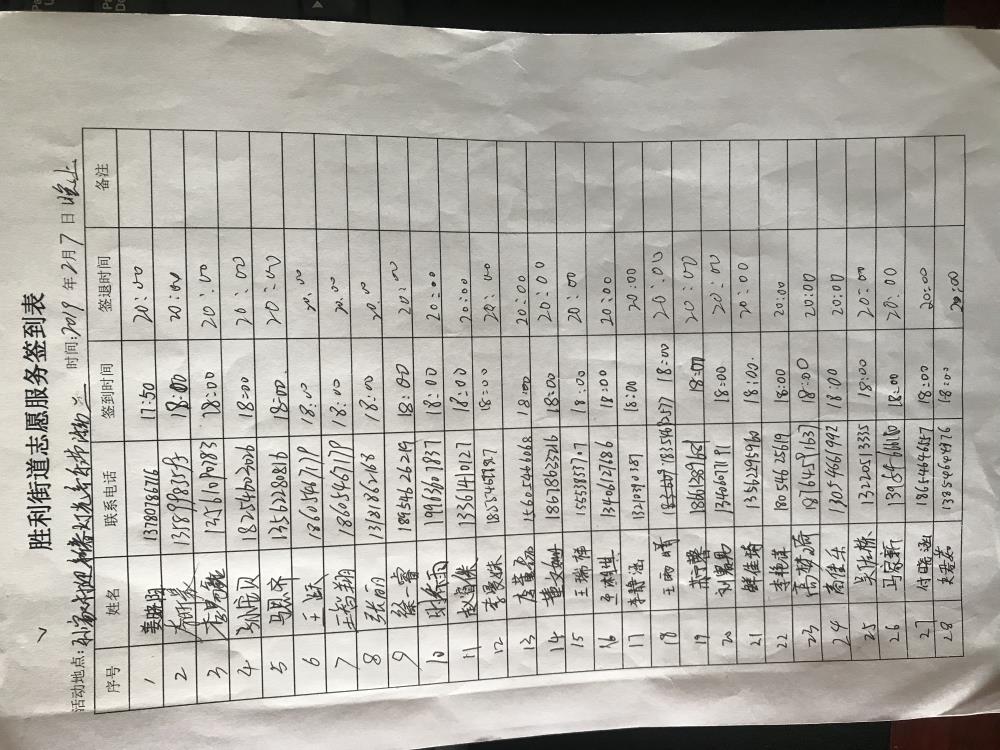 胜利街道志愿服务签到表
活动地点: 时间:2019年2月7日晚上
序号 姓名 联系电话 签到时间 签退时间 备注
1 姜妍羽 13780786716 17:50 20:00
2 18:00 20:00
3 13561090783 18:00 20:00
4 18254602026 18:00 20:00
5 马思齐 13562280816 18:00 20:00
6 王跃 18605467179 18:00 20:00
7 王皓翔 18605467179 18:00 20:00
8 张丽 13181862168 18:00 20:00
9 徐一睿 18954626219 18:00 20:00
10 19963601837 18:00 20:00
11 13361410127 18:00 20:00
12 18:00 20:00
13 15605466068 18:00 20:00
14 董文姗 18678623216 18:00 20:00
15 王瑞祥 15553853707 18:00 20:00
16 13406127186 18:00 20:00
17 李静涵 13210390187 18:00 20:00
18 王雨晴 18:00 20:00
19 18:00 20:00
20 刘嘉易 13406071191 18:00 20:00
21 13562959160 18:00 20:00
22 李梅祺 18054625619 18:00 20:00
23 高梦涵 18764591637 18:00 20:00
24 周佳乐 13054661992 18:00 20:00
25 吴胜栋 13220513335 18:00 20:00
26 马家新 13954660160 18:00 20:00
27 付晗涵 18654646587 18:00 20:00
28 13854644976 18:00 20:00